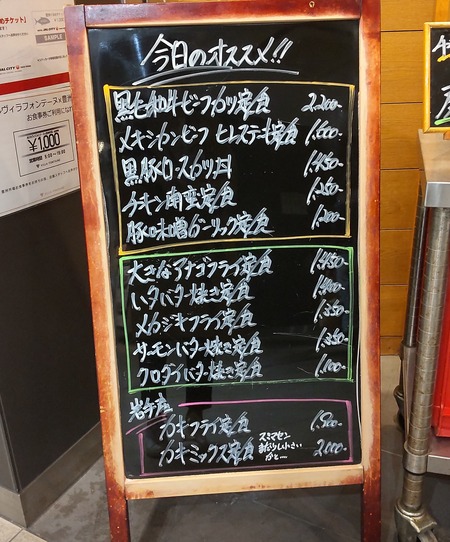 今日のオススメ!!
黒毛和牛ビーフカツ定食 2,200-
メキシカンビーフ ヒレステーキ定食 1,600-
黒豚ロースカツ丼 1,450-
チキン南蛮定食 1,250-
豚ロ味噌ガーリック定食 1,200-
大きなアナゴフライ定食 1,450-
ハタバター焼き定食 1,400-
メカジキフライ定食 1,350-
サーモンバター焼き定食 1,350-
クロダイバター焼き定食 1,100-
岩手産
カキフライ定食 1,800-
カキミックス定食 2,000-
スミマセン
SAMPLE
¥1,000